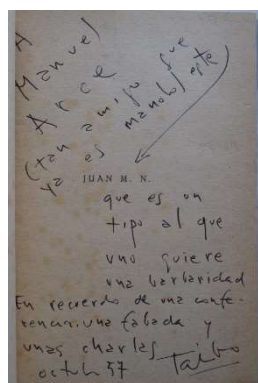 A
Manuel
Arce
(tan amigo que
ya es manolo) este
JUAN M. N.
que es un
tipo al que
uno quiere
una barbaridad
En recuerdo de una confe-
rencia, una fabada y
unas charlas
octub 57 Taibo